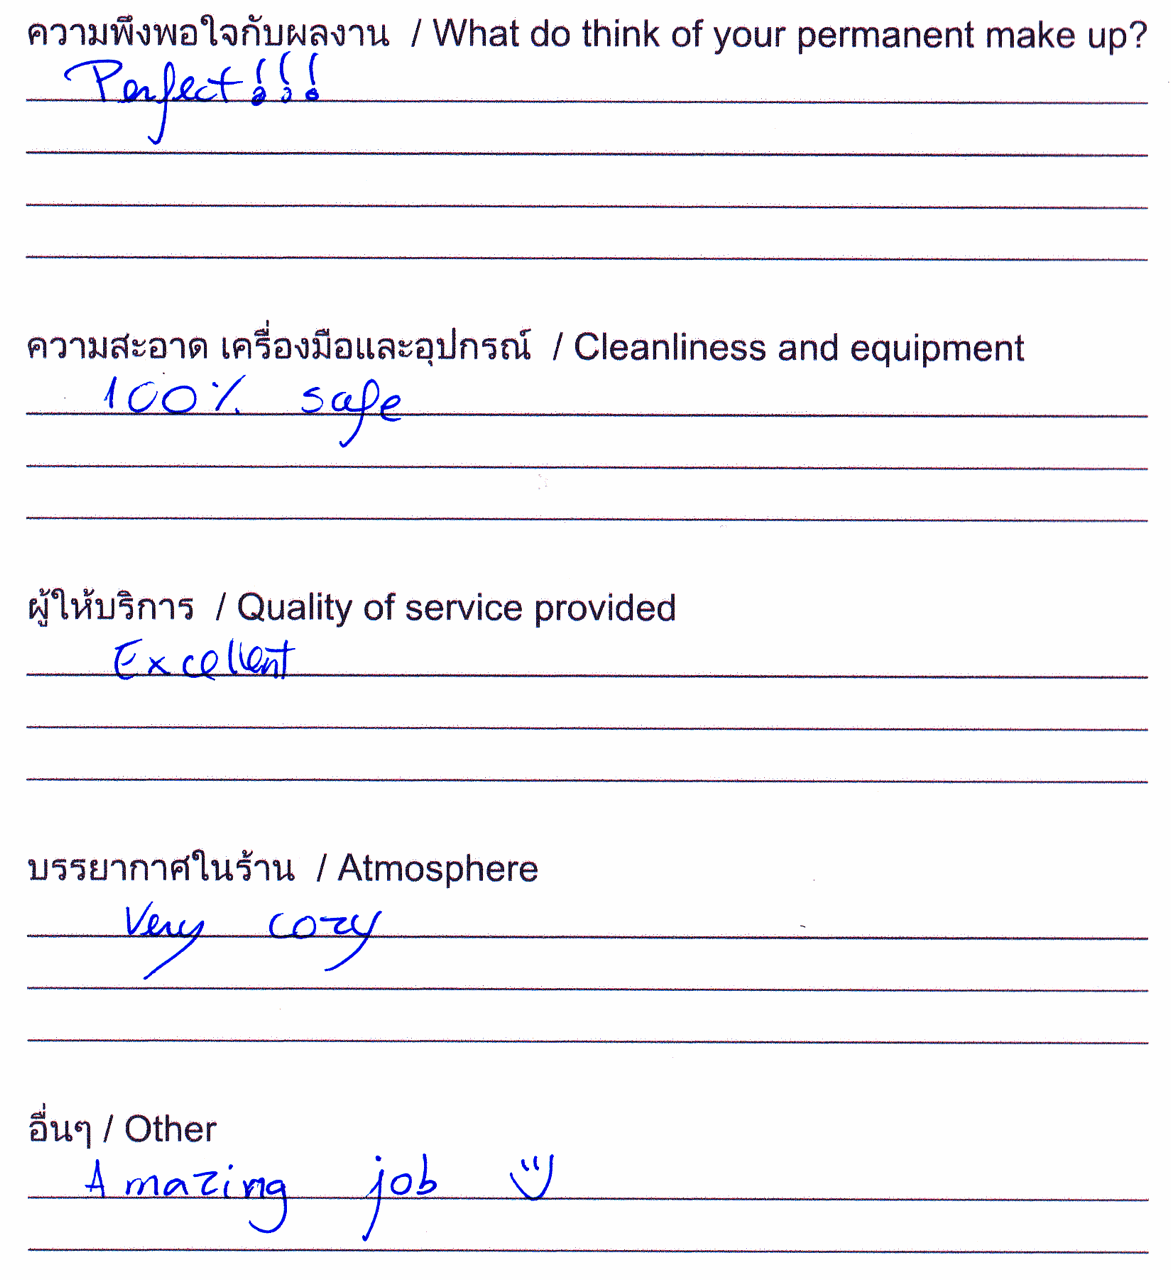 ความพึงพอใจกับผลงาน / What do think of your permanent make up?
Perfect!!!
ความสะอาด เครื่องมือและอุปกรณ์ / Cleanliness and equipment
100% safe
ผู้ให้บริการ / Quality of service provided
Excellent
บรรยากาศในร้าน / Atmosphere
Very cozy
อื่นๆ / Other
Amazing job